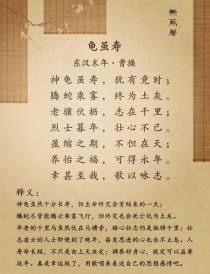 龟虽寿
东汉末年·曹操
神龟虽寿，犹有竟时；
腾蛇乘雾，终为土灰。
老骥伏枥，志在千里；
烈士暮年，壮心不已。
盈缩之期，不但在天；
养怡之福，可得永年。
幸甚至哉，歌以咏志。
释义：
神龟虽然十分长寿，但生命终究会有结束的一天；
腾蛇尽管能腾云乘雾飞行，但终究也会死亡化为土灰。
年老的千里马虽然伏在马槽旁，雄心壮志仍是驰骋千里；壮
志凌云的人士即便到了晚年，奋发思进的心也永不止息。人
寿命长短，不只是由上天决定；调养好身心，就定可以益寿
延年。真是幸运极了，用歌唱来表达自己的思想感情吧。